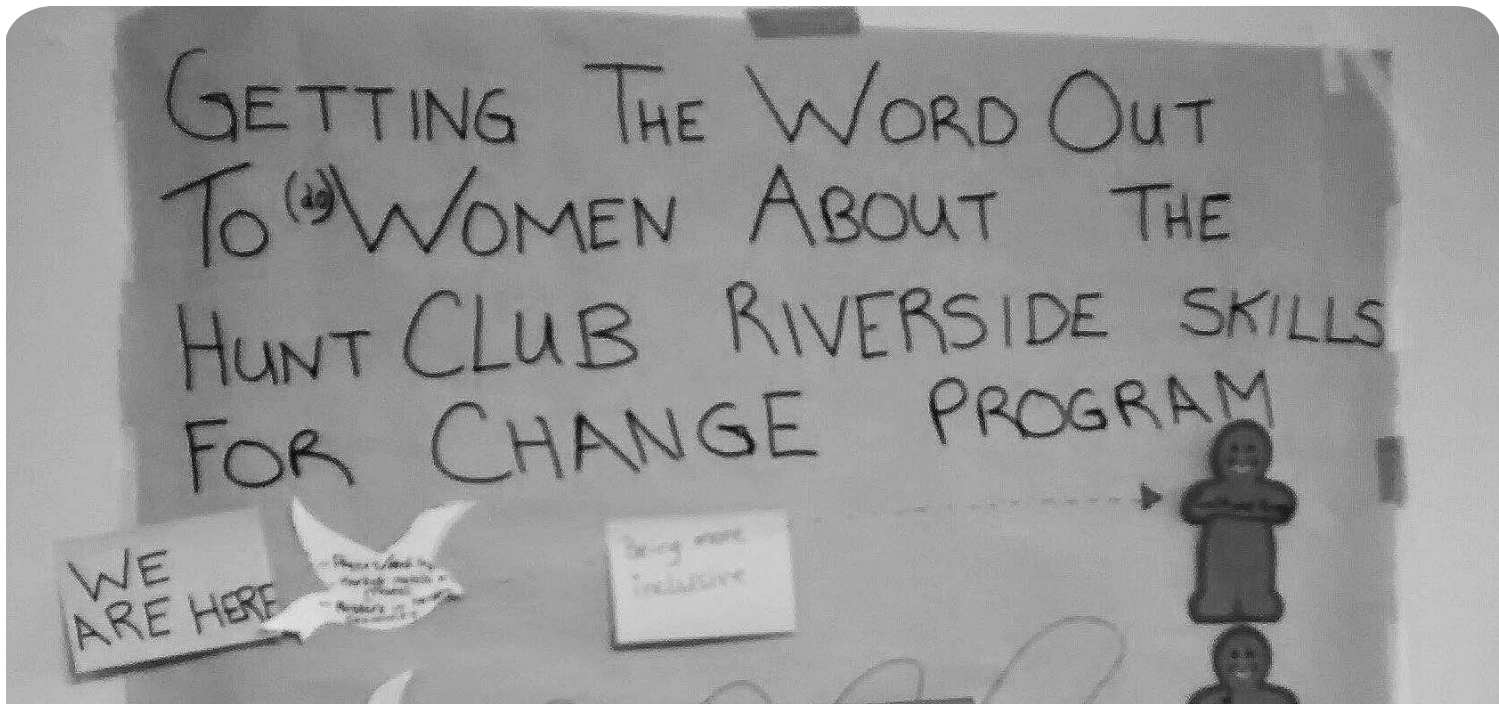 GETTING THE WORD OUT
TO (20) WOMEN ABOUT THE
HUNT CLUB RIVERSIDE SKILLS
FOR CHANGE PROGRAM
WE
ARE HERE
being more
inclusive